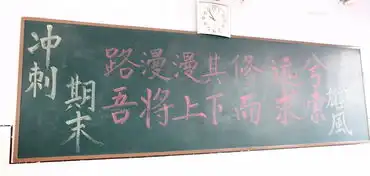 冲刺
期末
路漫漫其修远兮
吾将上下而求索
風